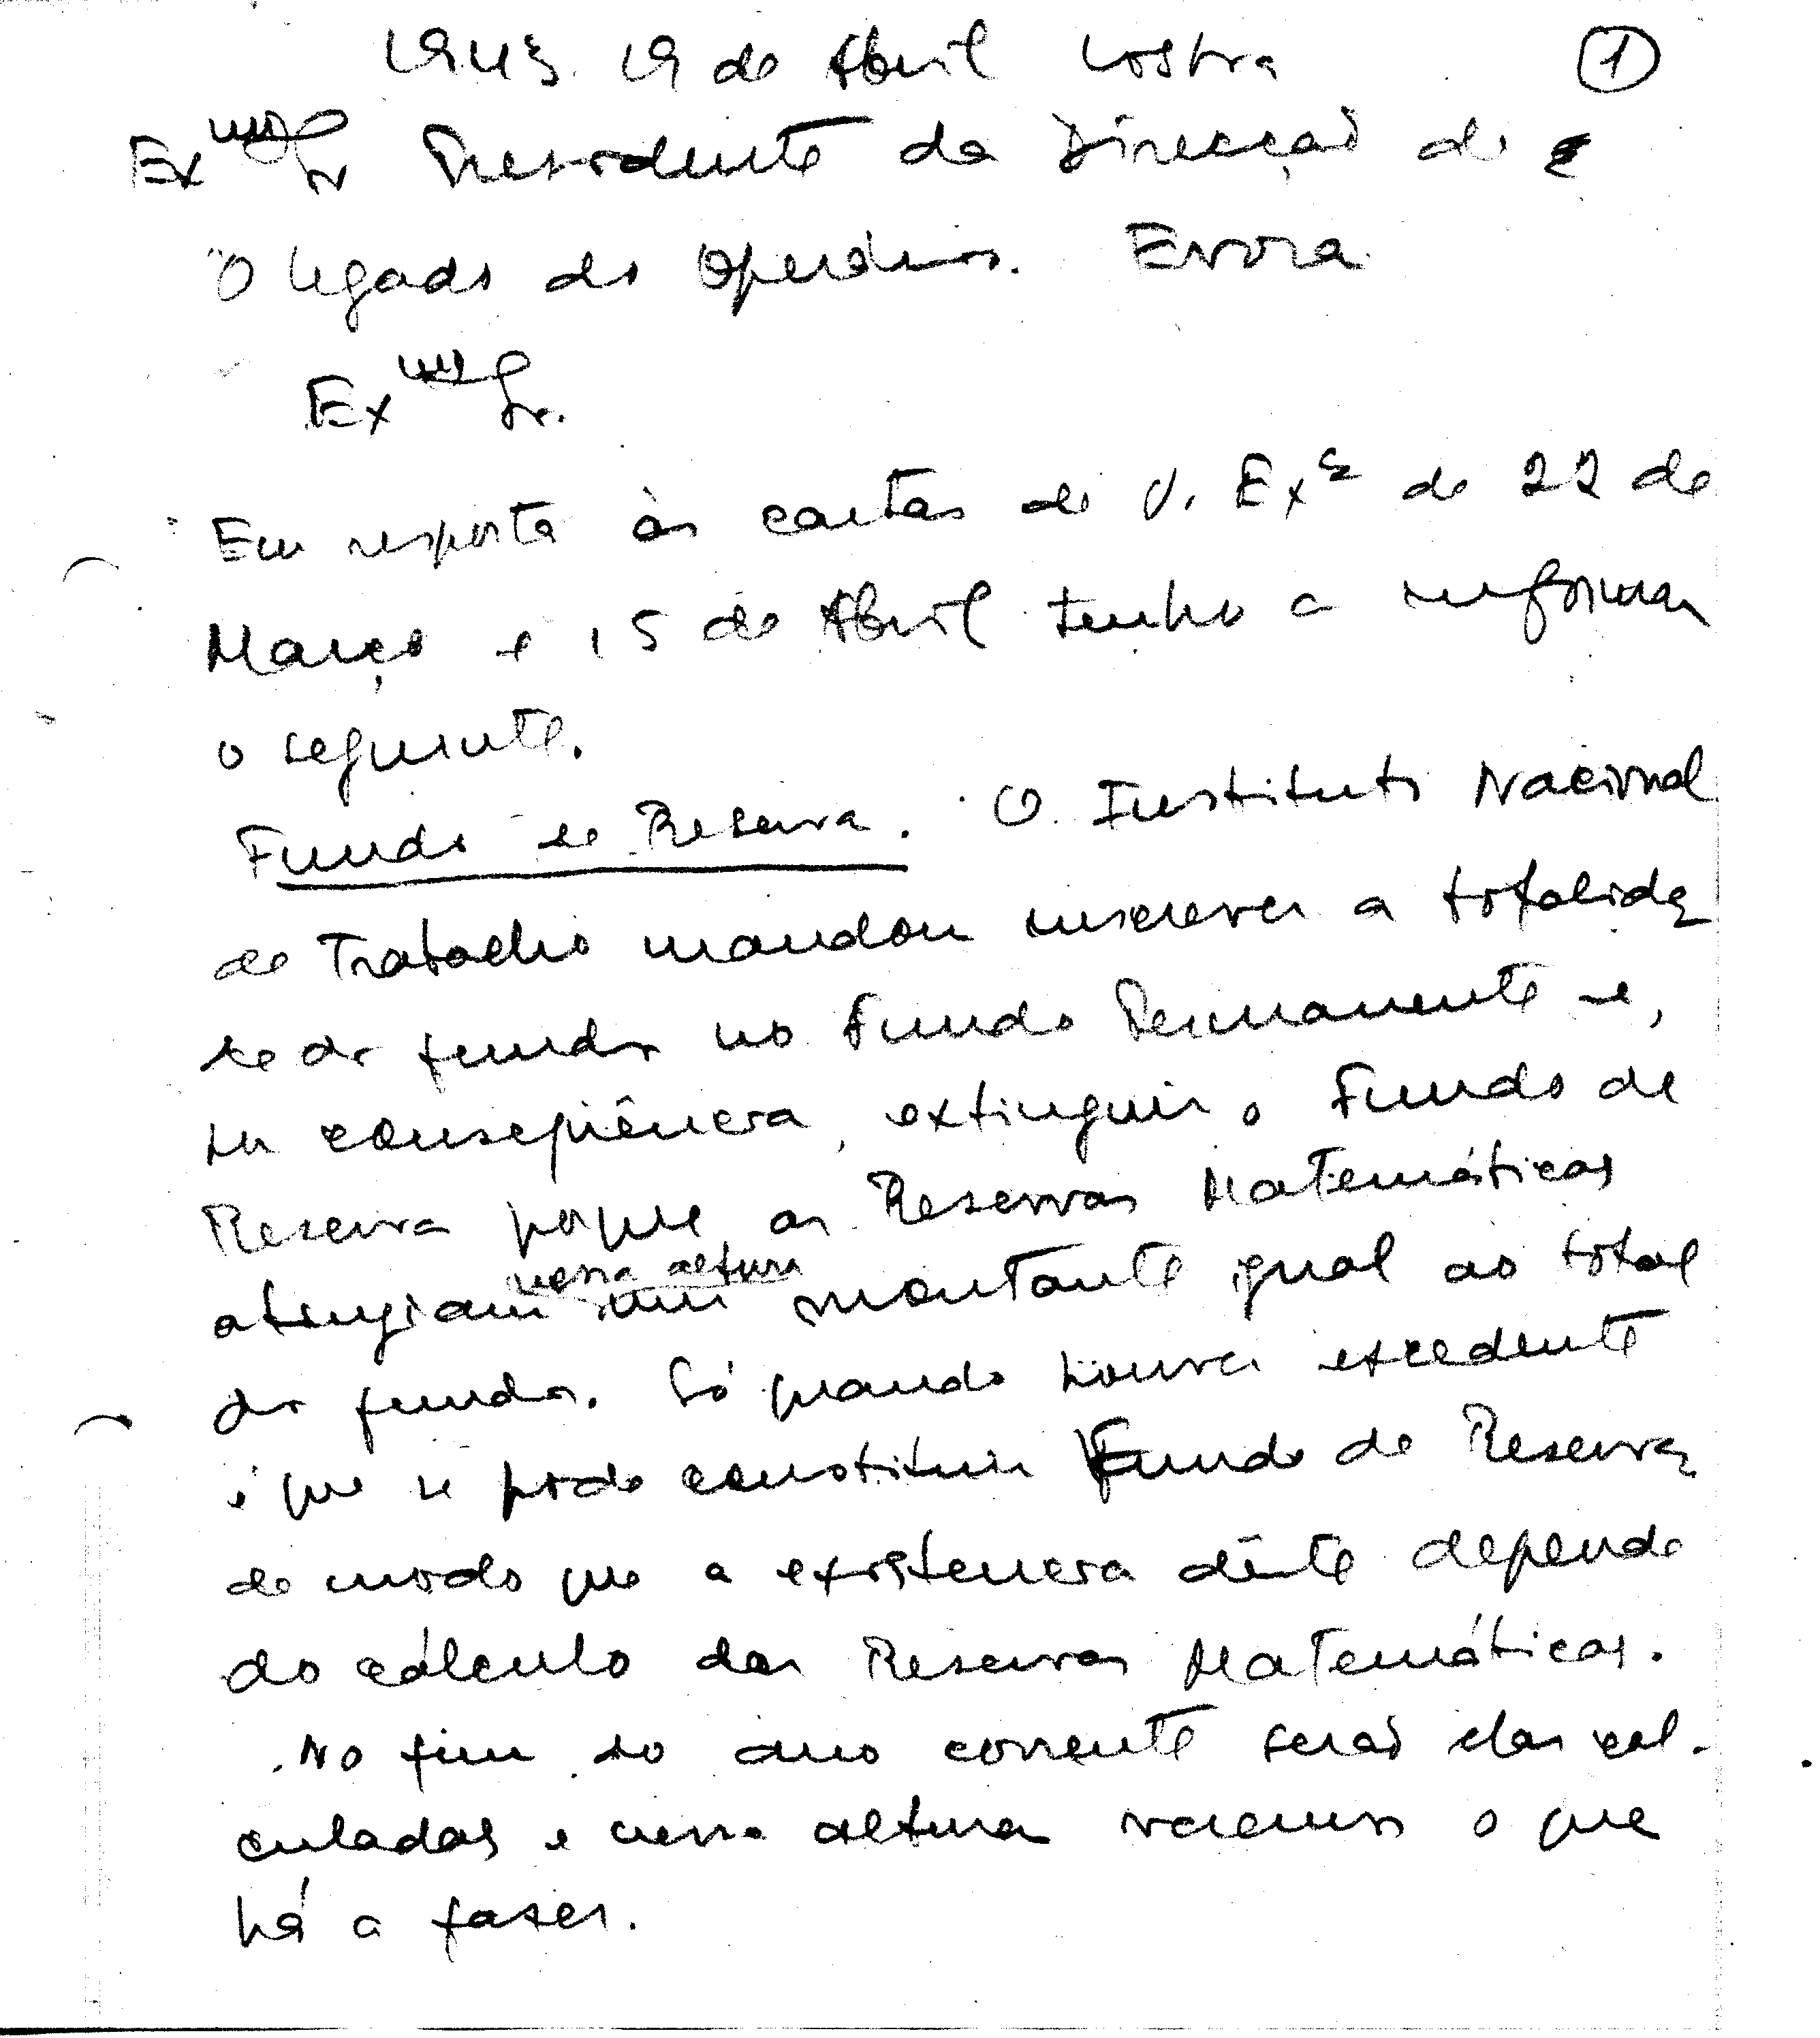 1943. 19 de Abril Lostra ①
Exmo Sr Presidente da Direcção de
"O Legado do Operário. Evora
Exmo Sr.
Em resposta às cartas de V. Exª de 22 de
Março e 15 de Abril tenho a informar
o seguinte.
Fundo de Reserva. O Instituto Nacional
do Trabalho mandou inscrever a totalida
de dos fundos no Fundo Permanente e,
em conseqüência, extinguir o Fundo de
Reserva porque as Reservas Matemáticas
nessa altura
atingiam um montante igual ao total
dos fundos. Só quando houver excedente
é que se pode constituir Fundo de Reserva
de modo que a existencia dêste depende
do cálculo das Reservas Matemáticas.
No fim do ano corrente serão elas cal-
culadas e nessa altura veremos o que
há a fazer.